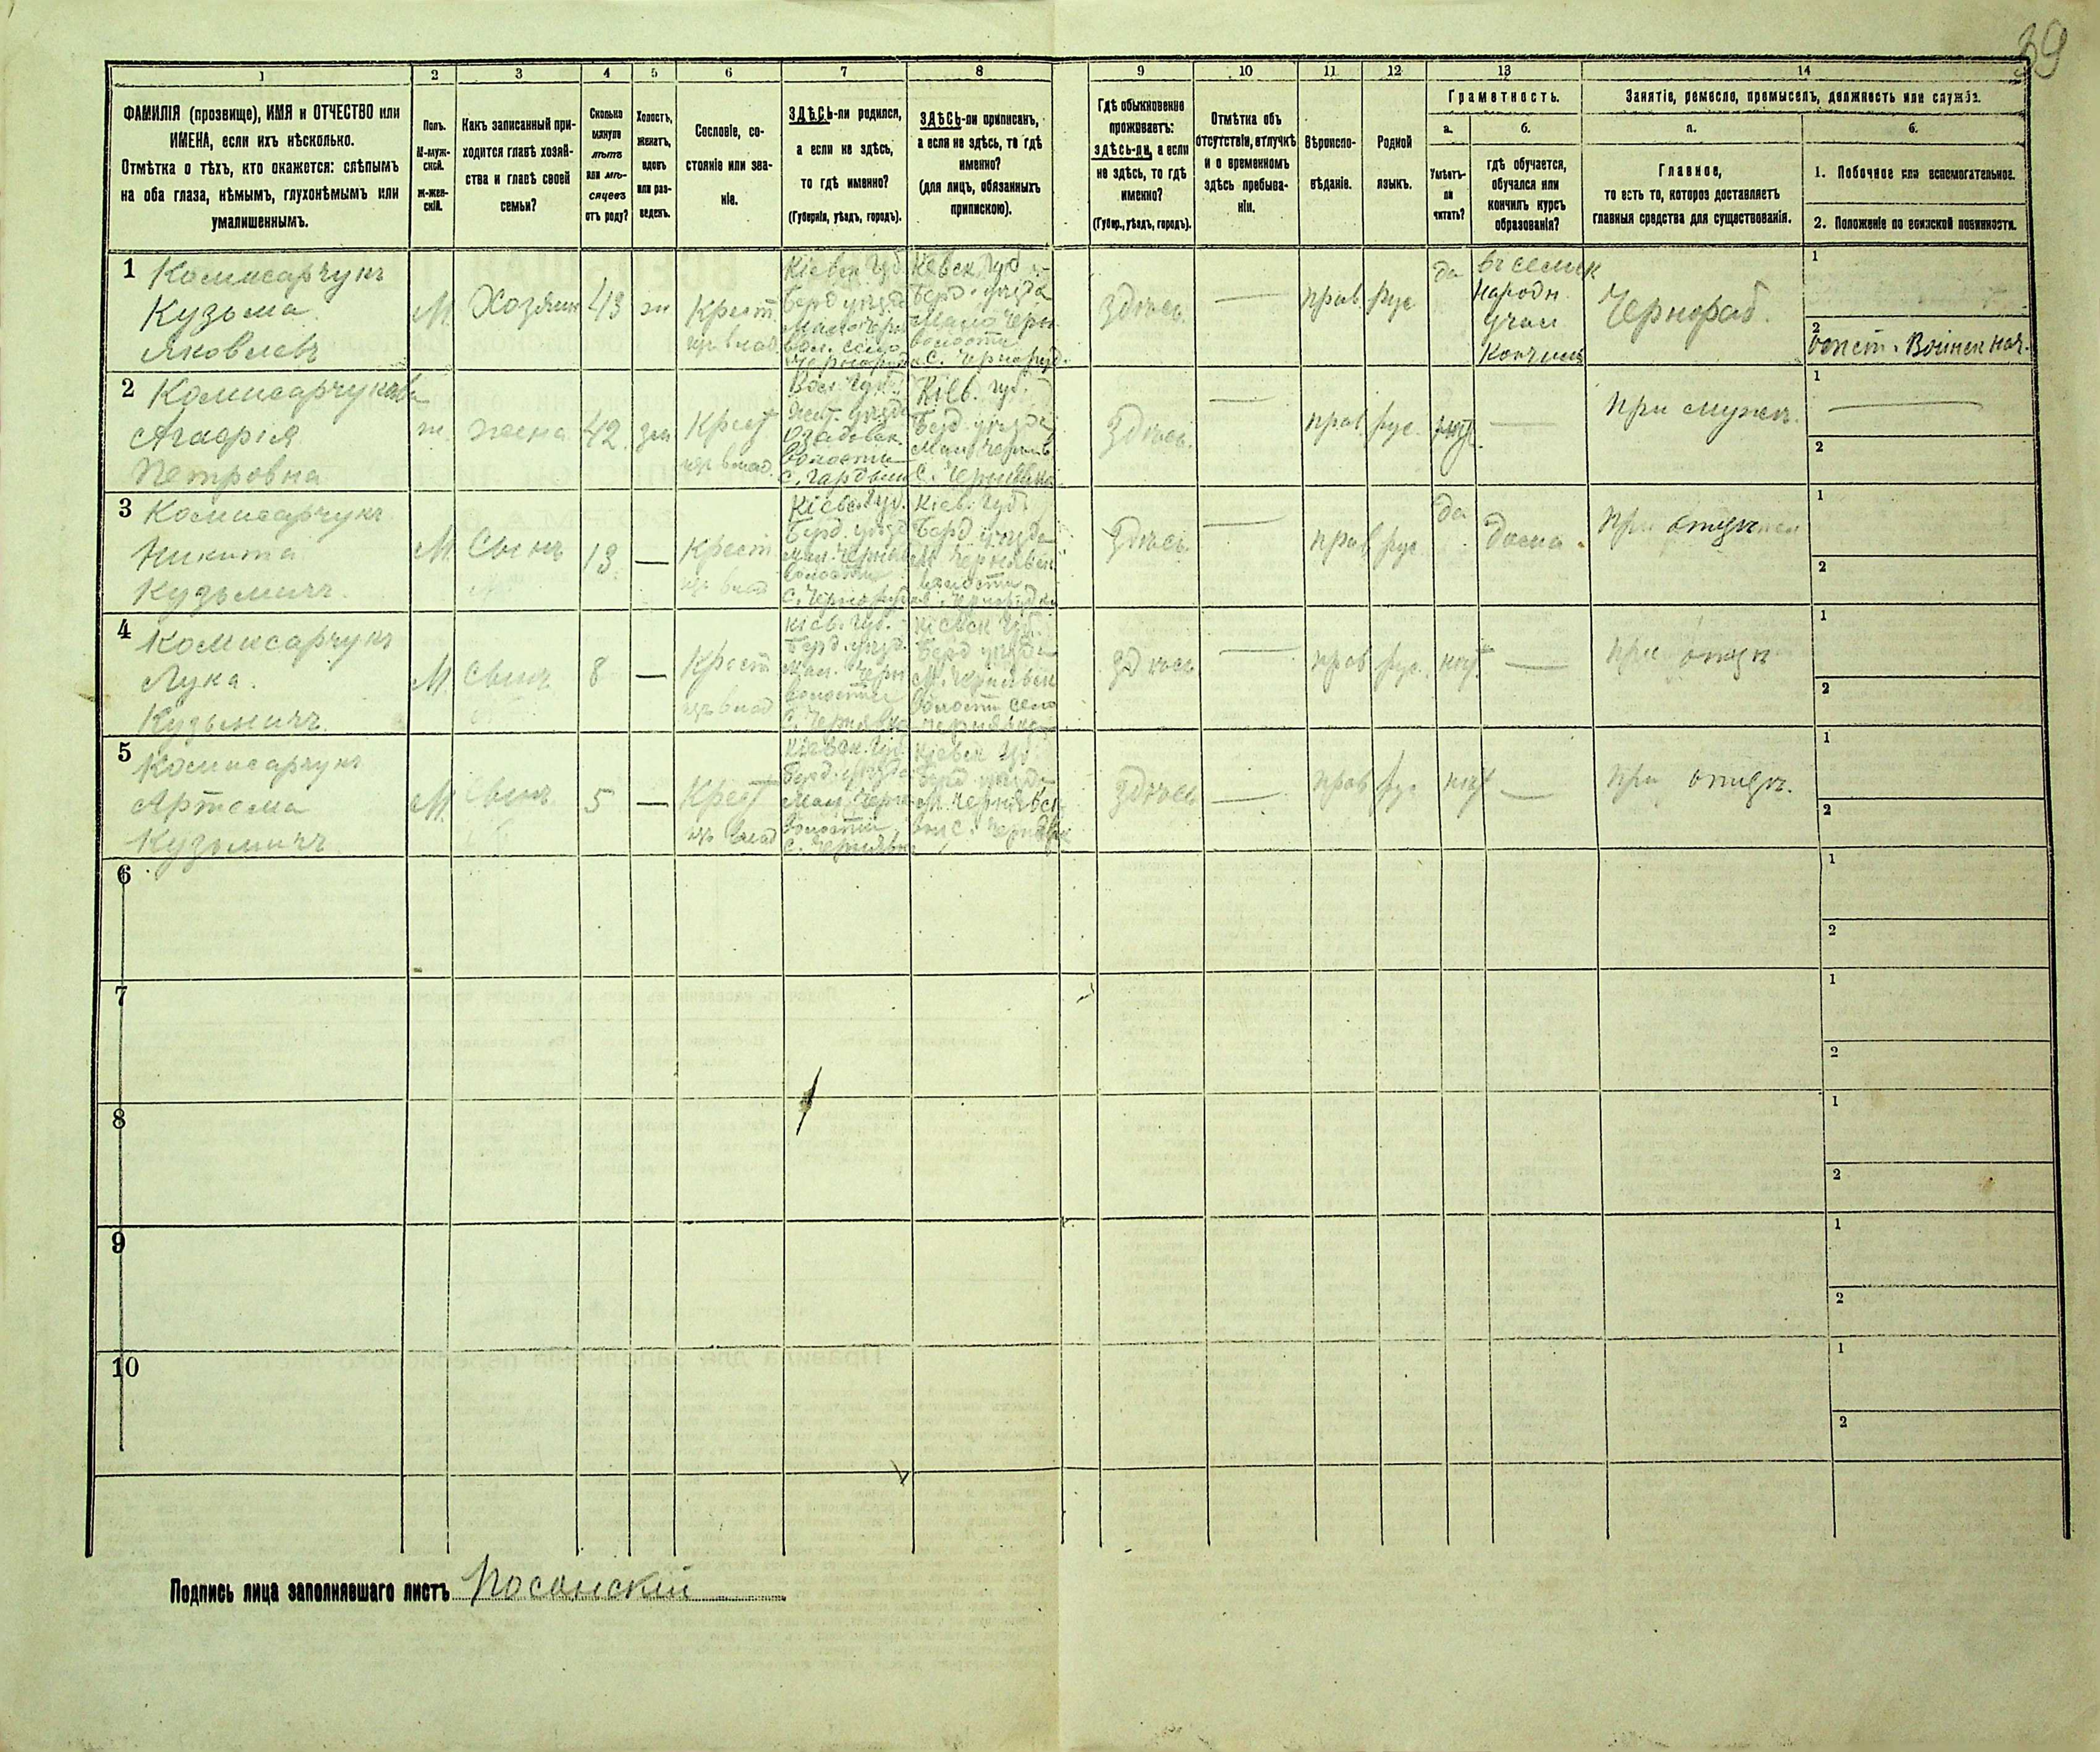 39
1 2 3 4 5 6 7 8 9 10 11 12 13 14
ФАМИЛІЯ (прозвище), ИМЯ и ОТЧЕСТВО или
ИМЕНА, если ихъ нѣсколько.
Отмѣтка о тѣхъ, кто окажется: слѣпымъ
на оба глаза, нѣмымъ, глухонѣмымъ или
умалишеннымъ.
Полъ.
М-муж-
ской.
Ж-жен-
скій.
Какъ записанный при-
ходится главѣ хозяй-
ства и главѣ своей
семьи?
Сколько
минуло
лѣтъ
или мѣ-
сяцевъ
отъ роду?
Холостъ,
женатъ,
вдовъ
или раз-
веденъ.
Сословіе, со-
стояніе или зва-
ніе.
ЗДѢСЬ-ли родился,
а если не здѣсь,
то гдѣ именно?
(Губернія, уѣздъ, городъ).
ЗДѢСЬ-ли приписанъ,
а если не здѣсь, то гдѣ
именно?
(для лицъ, обязанныхъ
припискою).
Гдѣ обыкновенно
проживаетъ:
здѣсь-ли, а если
не здѣсь, то гдѣ
именно?
(Губер., уѣздъ, городъ).
Отмѣтка объ
отсутствіи, отлучкѣ
и о временномъ
здѣсь пребыва-
ніи.
Вѣроиспо-
вѣданіе.
Родной
языкъ.
Грамотность.
а.
Умѣетъ-
ли
читать?
б.
гдѣ обучается,
обучался или
кончилъ курсъ
образованія?
Занятіе, ремесло, промыселъ, должность или служба.
а.
Главное,
то есть то, которое доставляетъ
главныя средства для существованія.
б.
1. Побочное или вспомогательное.
2. Положеніе по воинской повинности.
1
Комисарчукъ
Кузьма
Яковлевъ
М.
Хозяин
43
жн
Крест
изъ влад.
Кіевск. Губ.
Берд уѣзда
Мало Черн
вол. село
Кіевск. Губ
Берд. уѣзда
Мало Черн
волости
с.
здѣсь.
прав
рус
да
въ сельск
народн.
учил
Кончилъ
Чернораб.
1
2
Воинск нач.
2
Комисарчукова
Агафія
Петровна
ж.
жена
42.
зам
Крест
изъ влад.
Вол. Губ.
Жит. уѣзда
волости
Кіев. губ.
Берд. уѣзда
здѣсь.
прав
рус.
нѣт.
При мужѣ.
1
2
3
Комисарчукъ
Никита
Кузьмичъ.
М.
Сынъ
13.
Крест.
изъ влад
Кіевск. Губ.
Берд. уѣзд
волости
Кіев. Губ
Берд. уѣзда
волости
здѣсь.
прав
рус
да
дома.
При отцѣ
1
2
4
Комисарчукъ
Лука.
Кузьмичъ.
М.
Сынъ
8
Крест
изъ влад
Кіев. Губ.
Берд. уѣзд.
Мал. Черн
волости
с. Чернявка
Кіевск Губ.
Берд уѣзда
М. Чернявск
волости село
Чернявка
здѣсь
прав
рус.
нѣт
При отцѣ
1
2
5
Комисарчукъ
Артема
Кузьмичъ
М.
Сынъ
5
Крест
изъ влад
Кіевск. Губ.
Берд. уѣзда
Мал. Черн
волости
с. Чернявка
Кіевск Губ.
Берд уѣзда
М. Чернявск.
вол с. Чернявка
здѣсь
прав
рус
нѣт
При отцѣ.
1
2
6
1
2
7
1
2
8
1
2
9
1
2
10
1
2
Подпись лица заполнявшаго листъ Носанскій